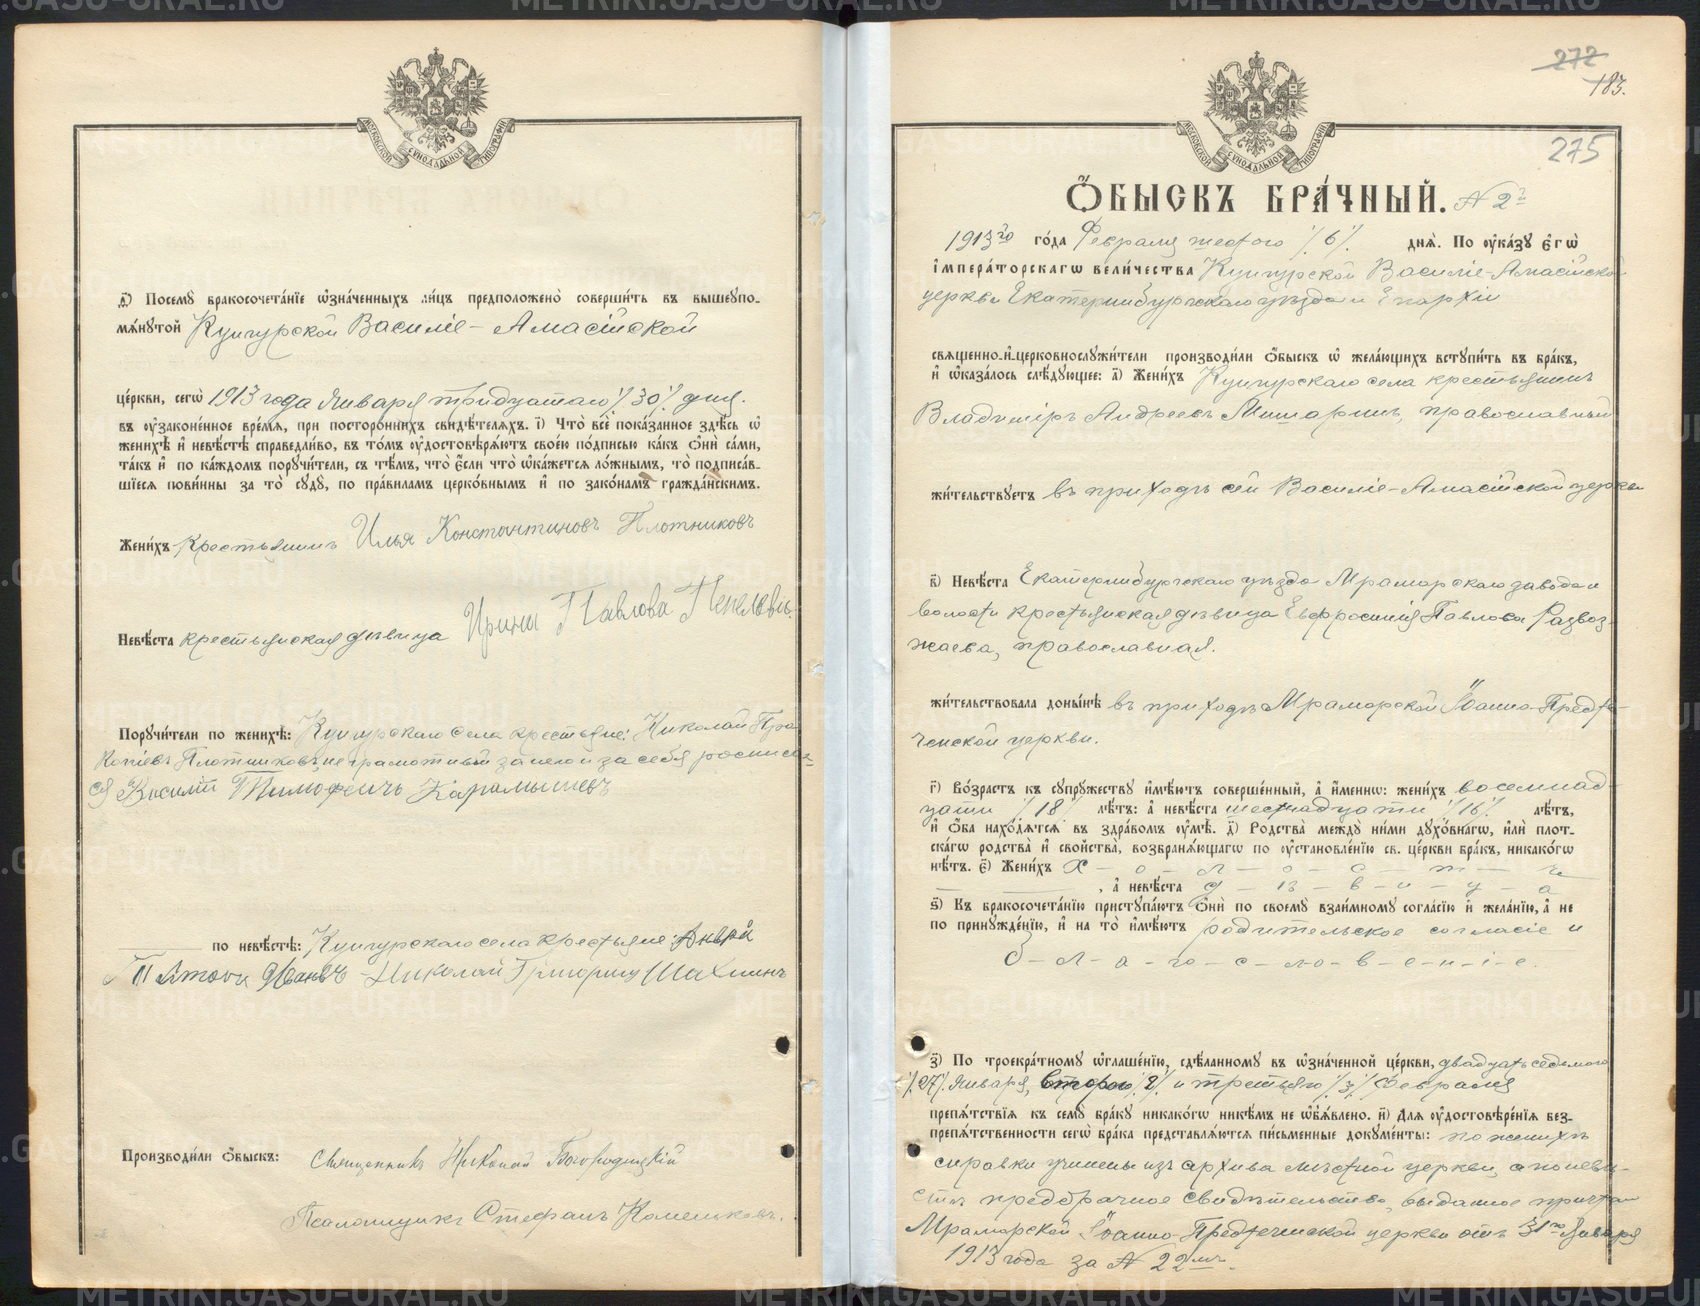 МОСКОВСКОЙ СѴНОДАЛЬНОЙ ТИПОГРАФІИ
ѳ҃) Посемꙋ бракосочета́нїе ѡ҆зна́ченныхъ ли́цъ предположено̀ соверши́ть въ вышеꙋпо-
мѧ́нꙋтой Кунгурской Василіе-Амасійской
це́ркви, сегѡ̀ 1913 года Января тридцатаго /30/ дня.
въ ᲂу҆зако́ненное вре́мѧ, при посторо́ннихъ свидѣ́телѧхъ. і҃) Что̀ всѐ пока́занное здѣ́сь ѡ҆
женихѣ̀ и҆ невѣ́стѣ справедли́во, въ то́мъ ᲂу҆достовѣрѧ́ютъ свое́ю по́дписью ка́къ ѻ҆нѝ са́ми,
та́къ и҆ по ка́ждомъ порꙋчи́тели, съ тѣ́мъ, что̀ є҆́сли что̀ ѡ҆ка́жетсѧ ло́жнымъ, то̀ подписа́в-
шїесѧ пови́нны за то̀ сꙋдꙋ̀, по пра́виламъ церко́внымъ и҆ по зако́намъ гражда́нскимъ.
Жени́хъ крестьянинъ Илья Константиновъ Плотниковъ
Невѣ́ста крестьянская дѣвица Ирина Павлова
Порꙋчи́тели по женихѣ̀: Кунгурскаго села крестьяне: Николай Про
копіевъ Плотниковъ, неграмотный за него и за себя росписал
ся Василій Тимофеичъ Карамышевъ
по невѣ́стѣ: Кунгурскаго села крестьяне: Андрей
Николай Григориц Шахминъ
Производи́ли ѻ҆́быскъ: Священникъ Николай Богородицкій
Псаломщикъ Стефанъ Коменьковъ.
272
183.
275
МОСКОВСКОЙ СѴНОДАЛЬНОЙ ТИПОГРАФІИ
Ѻ҆́БЫСКЪ БРА́ЧНЫЙ. N 2й
1913го го́да Февраля шестого /6/ днѧ̀. По ᲂу҆ка́зꙋ є҆гѡ̀
і҆мпера́торскагѡ вели́чества Кунгурской Василіе-Амасійской
церкви Екатеринбургскаго уѣзда и Епархіи
свѧщенно-и҆-церковнослꙋжи́тели производи́ли ѻ҆́быскъ ѡ҆ жела́ющихъ встꙋпи́ть въ бра́къ,
и҆ ѡ҆каза́лось слѣ́дꙋющее: а҃) Жени́хъ Кунгурскаго села крестьянинъ
Владиміръ Андреевъ Мишаринъ, православный
жи́тельствꙋетъ въ приходѣ сей Василіе-Амасійской церкви
в҃) Невѣ́ста Екатеринбургскаго уѣзда Мраморскаго завода и
волости крестьянская дѣвица Евфросинія Павлова Развоз-
жаева, православная.
жи́тельствовала доны́нѣ въ приходѣ Мраморской Іоанно-Предте-
ченской церкви.
г҃) Во́зрастъ къ сꙋпрꙋ́жествꙋ и҆мѣ́ютъ соверше́нный, а҆ и҆́меннѡ: жени́хъ восемнад-
цати /18/ лѣ́тъ: а҆ невѣ́ста шестнадцати /16/ лѣ́тъ,
и҆ ѻ҆́ба нахо́дѧтсѧ въ здра́вомъ ᲂу҆мѣ̀. д҃) Родства̀ междꙋ̀ ни́ми дꙋхо́внагѡ, и҆лѝ плот-
ска́гѡ родства̀ и҆ свойства̀, возбранѧ́ющагѡ по ᲂу҆становле́нїю св. це́ркви бра́къ, никако́гѡ
нѣ́тъ. є҃) Жени́хъ х-о-л-о-с-т-ъ
, а҆ невѣ́ста д-ѣ-в-и-ц-а
ѕ҃) Къ бракосочета́нїю пристꙋпа́ютъ ѻ҆нѝ по своемꙋ̀ взаи́мномꙋ согла́сїю и҆ жела́нїю, а҆ не
по принꙋжде́нїю, и҆ на то̀ и҆мѣ́ютъ родительское согласіе и
б-л-а-го-с-ло-в-е-н-і-е.
з҃) По троекра́тномꙋ ѡ҆глаше́нїю, сдѣ́ланномꙋ въ ѡ҆зна́ченной це́ркви, двадцать седьмого
/27/ Января, второго /2/ и третьяго /3/ Февраля
препѧ́тствїѧ къ семꙋ̀ бра́кꙋ никако́гѡ никѣ́мъ не ѡ҆б̾ѧ́влено. и҃) Длѧ ᲂу҆достовѣре́нїѧ без-
препѧ́тственности сегѡ̀ бра́ка представлѧ́ютсѧ пи́сьменные докꙋме́нты: по женихѣ
справки учинены изъ архива мѣстной церкви, а по невѣ-
стѣ предбрачное свидѣтельство, выданное причтом
Мраморской Іоанно-Предтечинской церкви отъ 31го Января
1913 года за N 22мъ.
METRIKI.GASU-URAL.RU